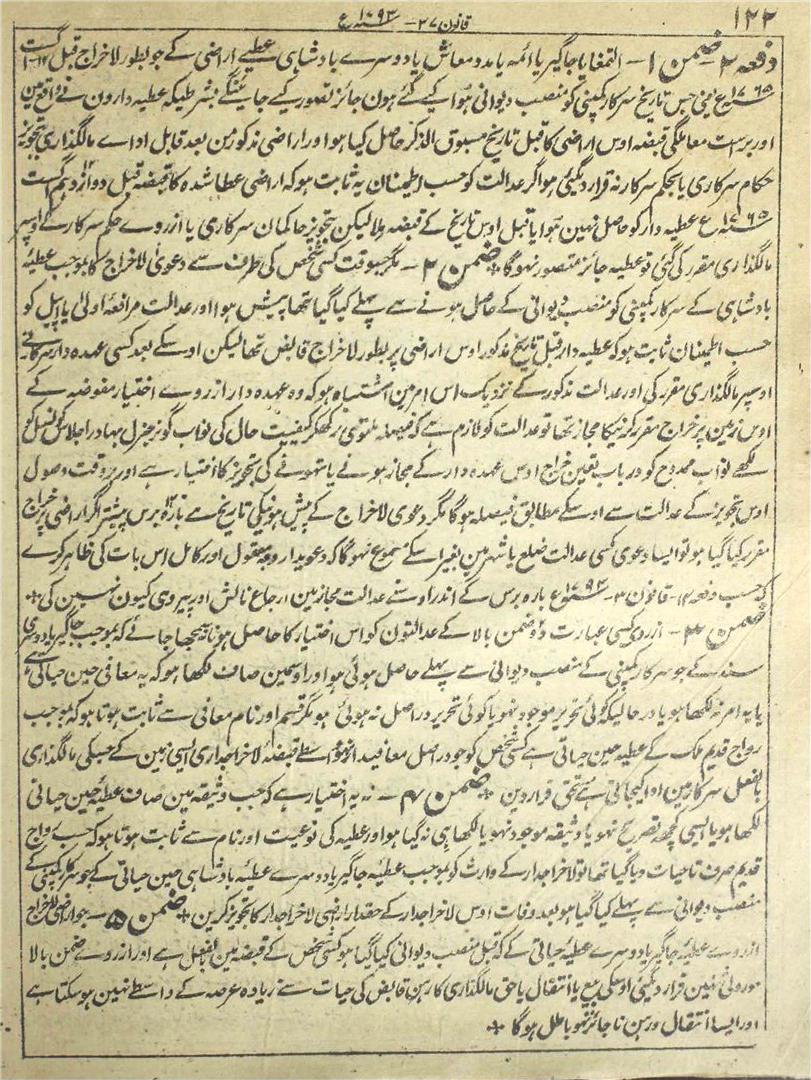 ۱۲۲
قانون ۳۷ ـ سنہ ۱۷۹۳ ع
دفعہ ۲ ـ ضمن ۱ ـ التمغا یا جاگیر یا ائمہ یا مدد معاش یا دوسرے بادشاہی عطیے اراضی کے جو بطور لاخراج قبل ۱۲ ـ اگست
سنہ ۱۷۶۵ ع یعنی جس تاریخ سرکار کمپنی کو منصب دیوانی ہوا کیے گئے ہون جائز تصور کیے جائینگے بشرطیکہ عطیہ دارون نے واقعین
اور براست معاملگی قبضہ اوس اراضی کا قبل تاریخ مسبوق الذکر حاصل کیا ہو اور اراضی مذکور من بعد قابل اداے مالگذاری بتجویز
حکام سرکاری یا بحکم سرکار نہ قرار دیگئی ہو اگر عدالت کو حسب اطمینان یہ ثابت ہو کہ اراضی عطا شدہ کا قبضہ قبل دوازدہم اگست
سنہ ۱۷۶۵ ع عطیہ دار کو حاصل نہین ہوا یا قبل اوس تاریخ کے قبضہ ملا لیکن بتجویز حاکمان سرکاری یا ازروے حکم سرکار کے اوسپر
مالگذاری مقرر کی گئی تو عطیہ جائز متصور نہوگا * ضمن ۲ ـ مگر جسوقت کسی شخص کی طرف سے دعوی لاخراج کا بموجب عطیہ
بادشاہی کے سرکار کمپنی کو منصب دیوانی کے حاصل ہونے سے پہلے کیا گیا تھا پیش ہوا اور عدالت مرافعۂ اولیٰ یا اپیل کو
حسب اطمینان ثابت ہو کہ عطیہ دار قبل تاریخ مذکور اوس اراضی پر بطور لاخراج قابض تھا لیکن اوسکے بعد کسی عہدہ دار سرکاری نے
اوسپر مالگذاری مقرر کی اور عدالت مذکور کے نزدیک اس امر مین اشتباہ ہو کہ وہ عہدہ دار ازروے اختیار مفوضہ کے
اوس زمین پر خراج مقرر کرنیکا مجاز تھا تو عدالت کو لازم ہے کہ فیصلہ ملتوی رکھکر کیفیت حال کی نواب گورنر جنرل بہادر اجلاس کونسل کو
لکھے نواب ممدوح کو در باب تعین خراج اوس عہدہ دار کے مجاز ہونے یا نہونے کی تجویز کا اختیار ہے اور بر وقت وصول
اوس تجویز کے عدالت سے اوسکے مطابق فیصلہ ہوگا مگر دعوی لاخراج کے پیش ہونیکی تاریخ سے بارہ برس پیشتر اگر اراضی پر خراج
مقرر کیا گیا ہو تو ایسا دعوی کسی عدالت ضلع یا شہر مین بغیر اسکے مسموع نہوگا کہ دعویدار وجہ معقول اور کامل اس بات کی ظاہر کرے
کہ حسب دفعہ ۱۴ ـ قانون ۳ ـ سنہ ۱۷۹۳ ع بارہ برس کے اندر اوسنے عدالت مجاز مین ارجاع نالش اور پیروی کیون نہین کی *
ضمن ۳ ـ ازروے کسی عبارت دو ضمن بالا کے عدالتون کو اس اختیار کا حاصل ہونا نہ سمجھا جائے کہ بموجب جاگیر یا دوسری
سند کے جو سرکار کمپنی کے منصب دیوانی سے پہلے حاصل ہوئی ہو اور اوسمین صاف لکھا ہو کہ یہ معافی حین حیاتی ہے
یا یہ امر نہ لکھا ہو یا در حالیکہ کوئی تحریر موجود نہو یا کوئی تحریر دراصل نہ ہوئی ہو مگر قسم اور نام معافی سے ثابت ہوتا ہو کہ بموجب
رواج قدیم ملک کے عطیہ حین حیاتی ہے کسی شخص کو جو دراصل معافیدار نہو واسطے قبضہ لاخراجداری ایسی زمین کے جسکی مالگذاری
بالفعل سرکار مین ادا کیجاتی ہے مستحق قرار دین * ضمن ۴ ـ نہ یہ اختیار ہے کہ جب وثیقہ مین صاف عطیہ حین حیاتی
لکھا ہو یا ایسی کچھ تصریح نہو یا وثیقہ موجود نہو یا لکھا ہی نہ گیا ہو اور عطیہ کی نوعیت اور نام سے ثابت ہوتا ہو کہ حسب رواج
قدیم صرف تا حیات دیا گیا تھا تو لاخراجدار کے وارث کو بموجب عطیہ جاگیر یا دوسرے عطیہ بادشاہی حین حیاتی کے جو سرکار کمپنی کے
منصب دیوانی سے پہلے کیا گیا ہو بعد وفات اوس لاخراجدار کے حقدار اراضی لاخراجدار کا تجویز کرین * ضمن ۵ ـ جو اراضی لاخراج
ازروے عطیہ جاگیر یا دوسرے عطیہ حیاتی کے کہ قبل منصب دیوانی کیا گیا ہو کسی شخص کے قبضہ مین بالفعل ہے اور ازروے ضمن بالا
موروثی نہین قرار دیگئی اوسکی بیع یا انتقال یا حق مالگذاری کا رہن قابض کی حیات سے زیادہ عرصہ کے واسطے نہین ہوسکتا ہے
اور ایسا انتقال و رہن ناجائز و باطل ہوگا *